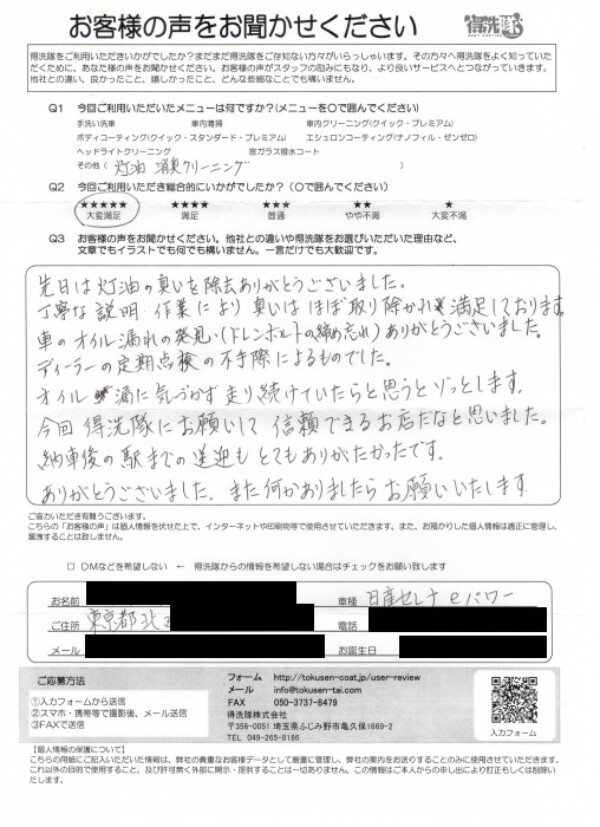 お客様の声をお聞かせください
得洗隊
得洗隊をご利用いただきいかがでしたか？まだまだ得洗隊をご存知ない方々がいらっしゃいます。その方々へ得洗隊をよく知っていただくために、あなた様の声をお聞かせください。お客様の声がスタッフの励みにもなり、より良いサービスへとつながっていきます。
他社との違い、良かったこと、嬉しかったこと、どんな些細なことでも構いません。
Q1 今回ご利用いただいたメニューは何ですか？(メニューを〇で囲んでください)
手洗い洗車 車内清掃 車内クリーニング(クイック・プレミアム)
ボディコーティング(クイック・スタンダード・プレミアム) エシュロンコーティング(ナノフィル・ゼンゼロ)
ヘッドライトクリーニング 窓ガラス撥水コート
その他 ( 灯油 消臭クリーニング )
Q2 今回ご利用いただき総合的にいかがでしたか？(〇で囲んでください)
★★★★★ ★★★★ ★★★ ★★ ★
大変満足 満足 普通 やや不満 大変不満
Q3 お客様の声をお聞かせください。他社との違いや得洗隊をお選びいただいた理由など、
文章でもイラストでも何でも構いません。一言だけでも大歓迎です。
先日は灯油の臭いを除去ありがとうございました。
丁寧な説明 作業により 臭いは ほぼ取り除かれ 満足しております。
車のオイル漏れの発見(ドレンボルトの締め忘れ)ありがとうございました。
ディーラーの定期点検の不手際によるものでした。
オイル 漏に気づかず走り続けていたらと思うとゾッとします。
今回 得洗隊にお願いして 信頼できるお店だなと思いました。
納車後の駅までの送迎も とてもありがたかったです。
ありがとうございました。また何かありましたらお願いいたします
ご協力いただき有難うございます。
こちらの「お客様の声」は個人情報を伏せた上で、インターネットや印刷物等で使用させていただきます。また、お預かりした個人情報は適正に管理し、
漏洩することは致しません。
□ DMなどを希望しない ← 得洗隊からの情報を希望しない場合はチェックをお願い致します
お名前 車種 日産セレナ eパワー
ご住所 東京都北 電話
メール お誕生日
ご応募方法
①入力フォームから送信
②スマホ・携帯等で撮影後、メール送信
③FAXで送信
フォーム http://tokusen-coat.jp/user-review
メール info@tokusen-tai.com
FAX 050-3737-8479
得洗隊株式会社
〒356-0051 埼玉県ふじみ野市亀久保1669-2
TEL 049-265-8186
入力フォーム
【個人情報の保護について】
こちらの用紙にご記入いただいた情報は、弊社の貴重なお客様データとして厳重に管理し、弊社の案内をお送りするためにのみに使用させていただきます。
これ以外の目的で使用すること、及び許可無く外部に開示・提供することは一切ありません。この情報はご本人からの申し出により訂正もしくは削除いたします。